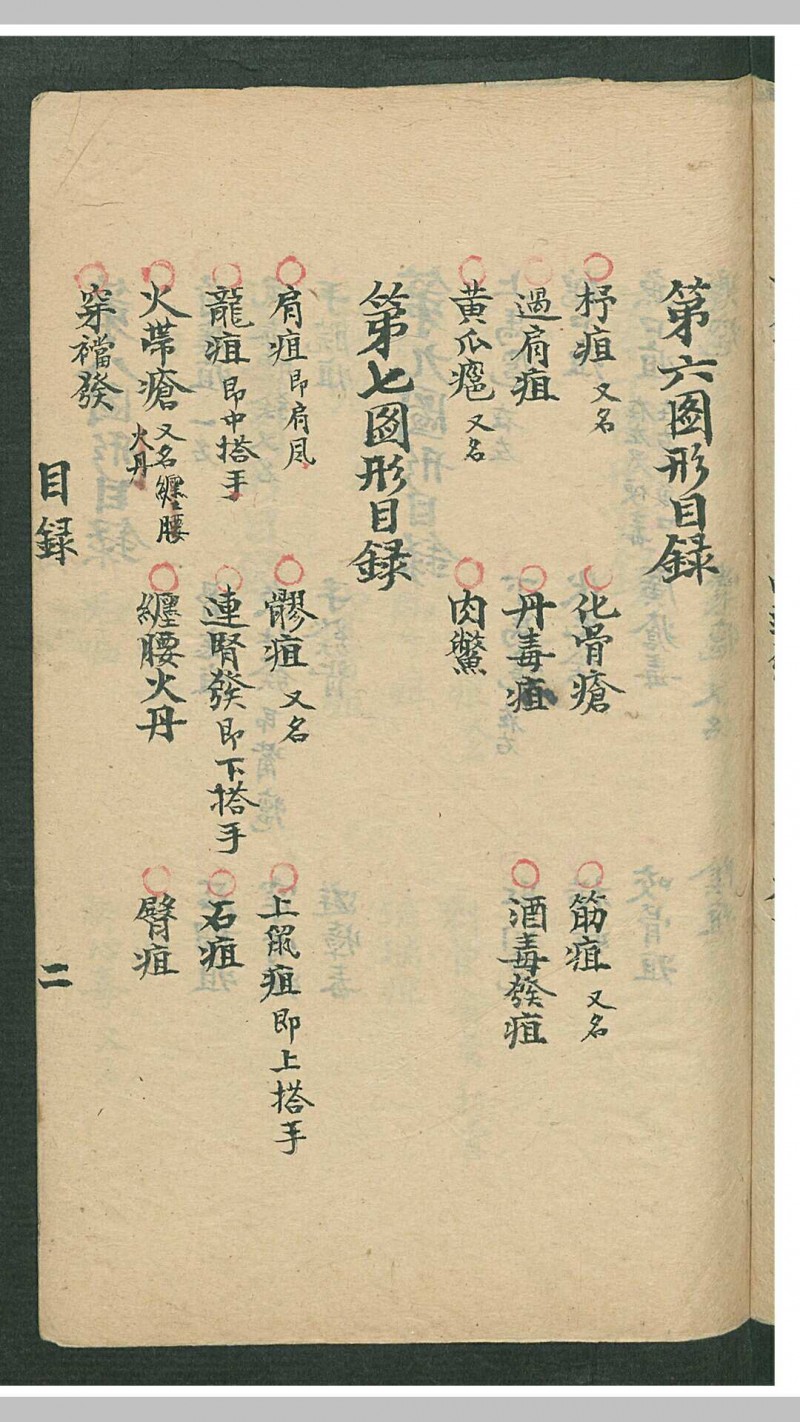 第六图形目録
杼疽 又名 化骨瘡 筋疽 又名
過肩疽 丹毒疽 酒毒發疽
黄瓜癧 又名 肉鱉
第七图形目録
肩疽 即肩风 髎疽 又名 上鼠疽 即上搭手
龍疽 即中搭手 連腎發 即下搭手 石疽
火带瘡 又名纏腰火丹 纏腰火丹 臂疽
穿襠發
目録 二